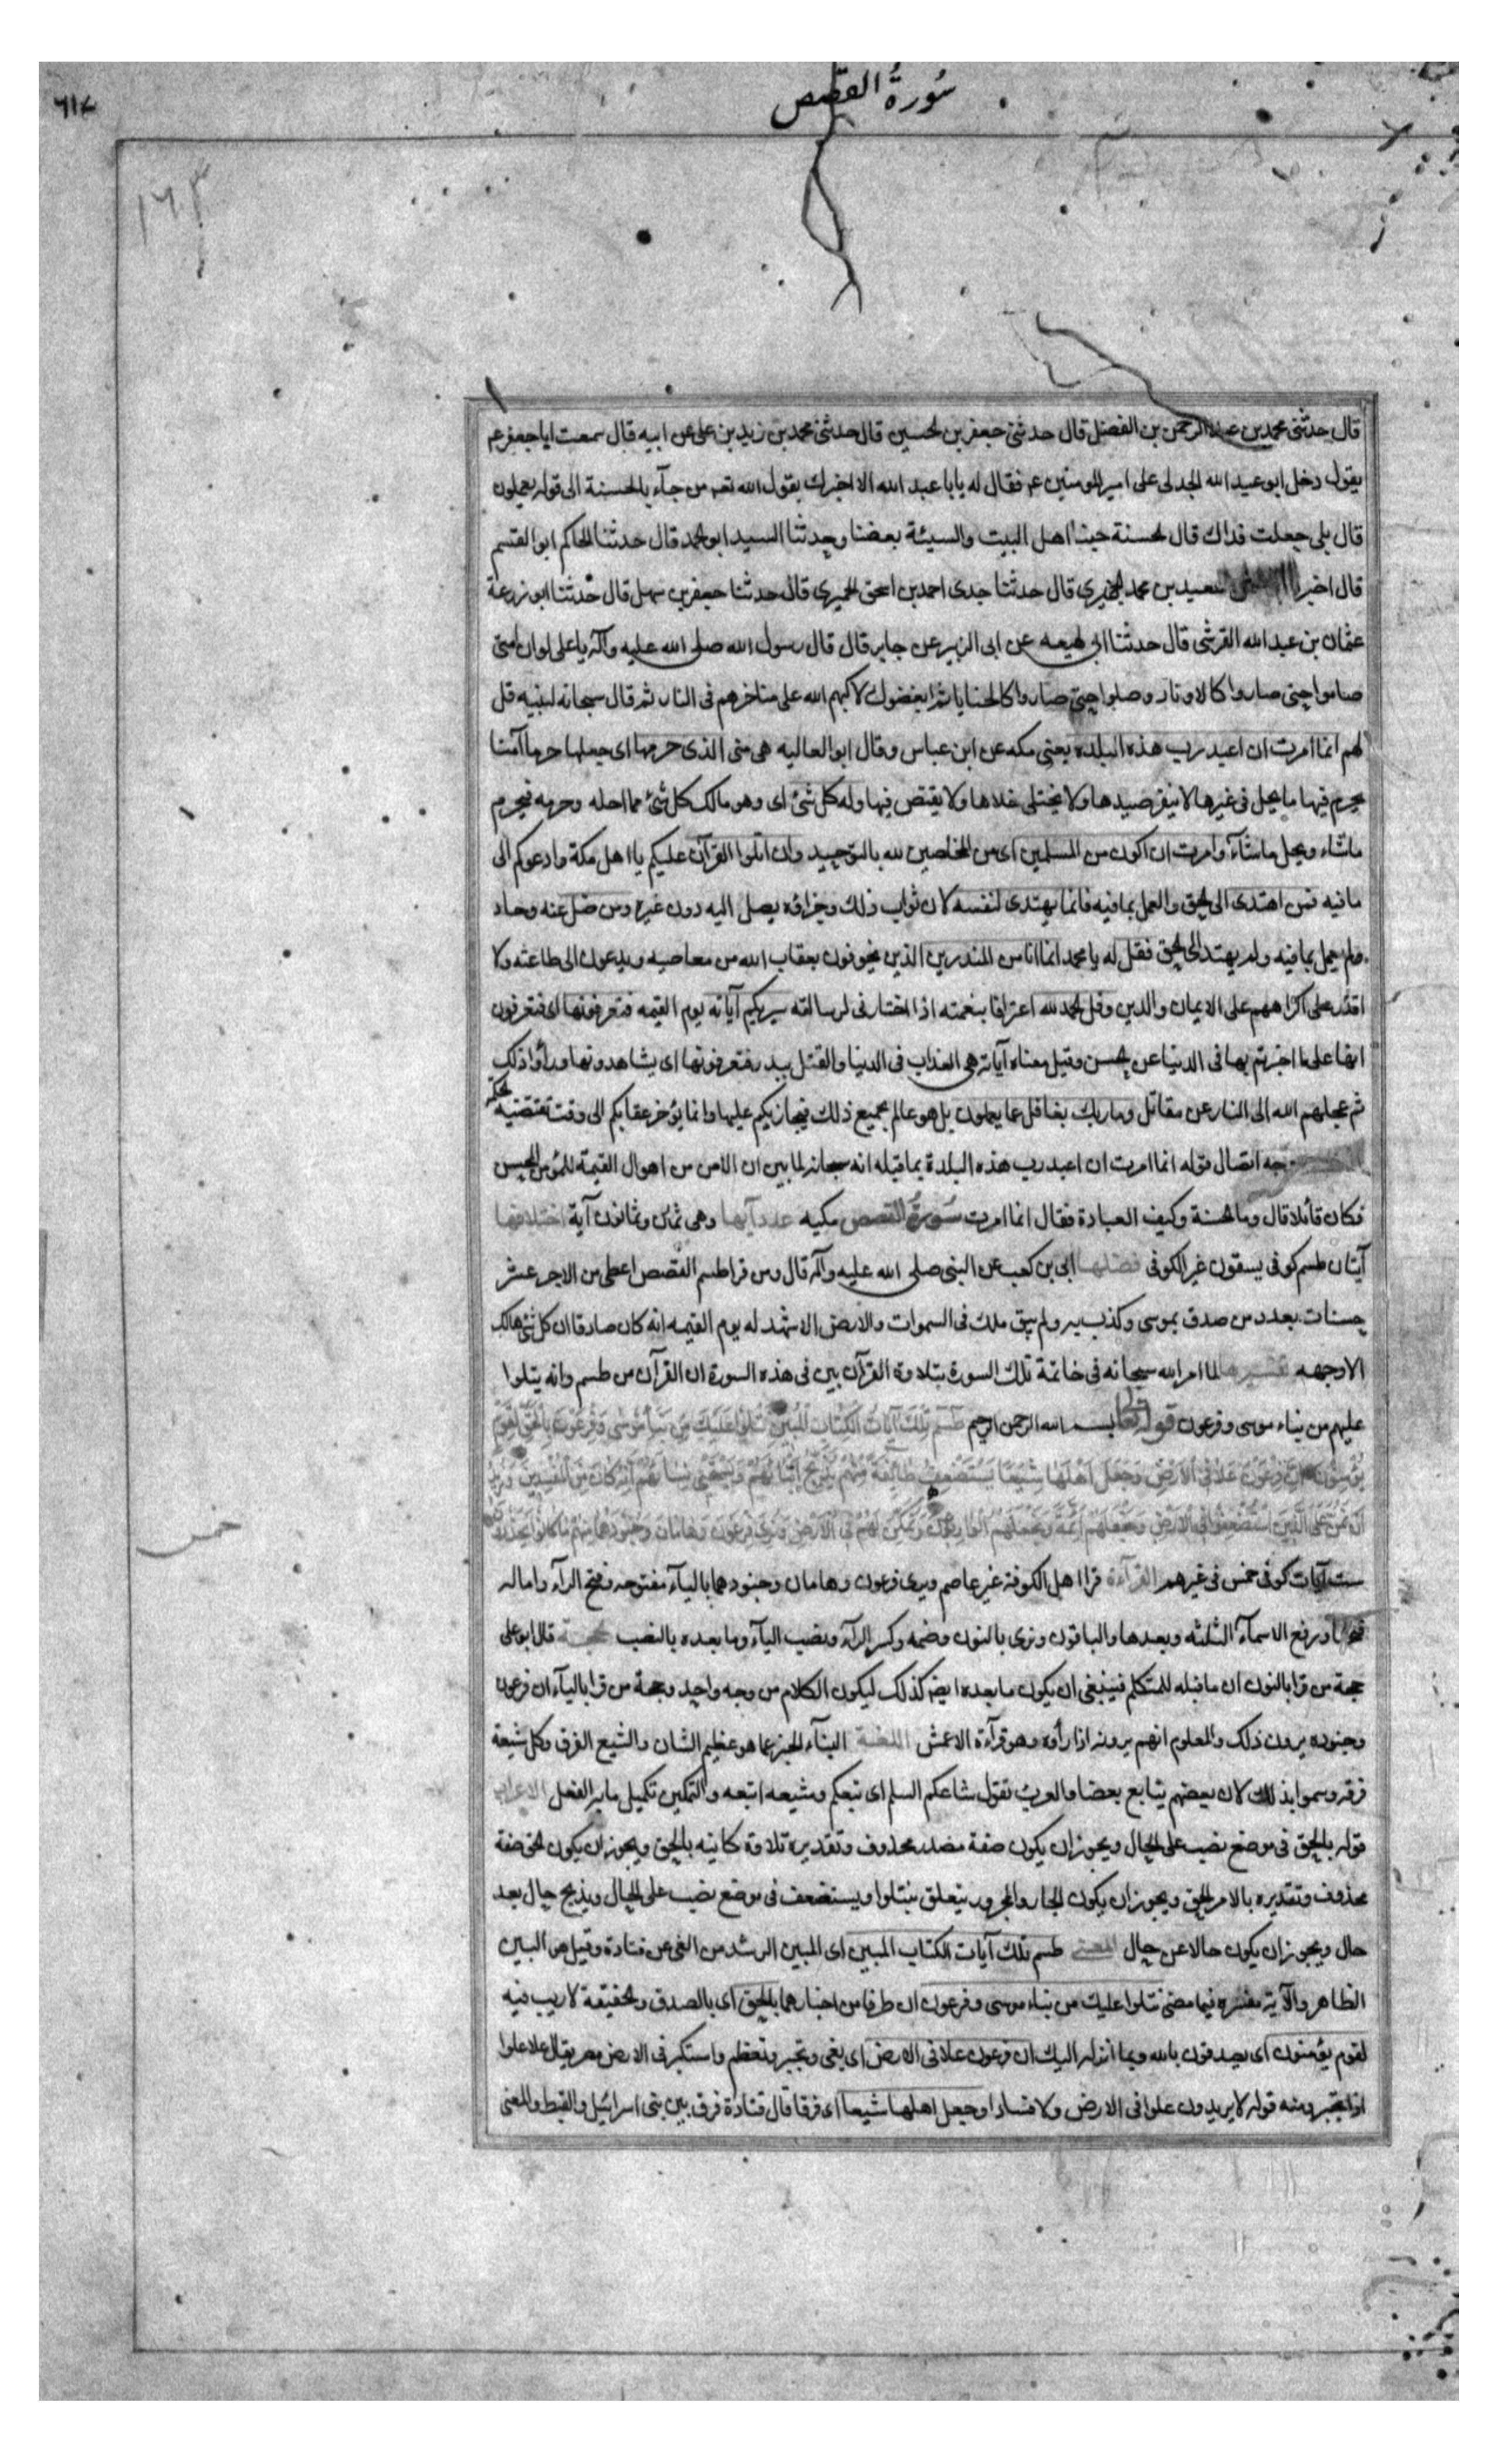 ٦١٧
سُورةُ القصص
١٦٣
قال حدثنى محمد بن عبد الرحمن بن الفضل قال حدثنى جعفر بن الحسين قال حدثنى محمد بن زيد بن على عن ابيه قال سمعت ابا جعفر عم
يقول دخل ابو عبد الله الجدلى على امير المومنين عم فقال له يابا عبد الله الا اخبرك بقول الله تعم من جآء بالحسنة الى قوله يعملون
قال بلى جعلت فداك قال الحسنة حبنا اهل البيت والسيئة بغضنا وحدثنا السيد ابو الحمد قال حدثنا الحاكم ابو القسم
قال اخبرنا سعيد بن محمد الحميرى قال حدثنا جدى احمد بن اسحق الحميرى قال حدثنا جعفر بن سهل قال حدثنا ابو زرعة
عثمان بن عبد الله القرشى قال حدثنا ابى لهيعه عن ابى الزبير عن جابر قال قال رسول الله صلى الله عليه وآله يا على لو ان امتى
صاموا حتى صاروا كالاوتار وصلوا حتى صاروا كالحنايا ثم ابغضوك لاكبهم الله على مناخرهم فى النار ثم قال سبحانه لنبيه قل
لهم انما امرت ان اعبد رب هذه البلده يعنى مكه عن ابن عباس وقال ابو العاليه هى منى الذى حرمها اى جعلها حرما آمنا
يحرم فيها ما يحل فى غيرها لا ينفر صيدها ولا يختلى خلاها ولا يقتص فيها وله كل شئ اى وهو مالك كل شئ مما احله وحرمه فيحرم
ماشاء ويحل ماشآء وامرت ان اكون من المسلمين اى من المخلصين لله بالتوحيد وان اتلوا القرآن عليكم يا اهل مكة وادعوكم الى
ما فيه فمن اهتدى الى الحق والعمل بما فيه فانما يهتدى لنفسه لان ثواب ذلك وجزاؤه يصل اليه دون غيره ومن ضل عنه وحاد
فلم يعمل بما فيه ولم يهتد الى الحق فقل له يا محمد انما انا من المنذرين الذين يخوفون بعقاب الله من معاصيه ويدعون الى طاعته ولا
اقدر على اكراههم على الايمان والدين وقل الحمد لله اعترافا بنعمته اذ اختارنى لرسالته سيريكم آياته يوم القيمه فتعرفونها اى فتعرفون
انها على ما اخبرتم بها فى الدنيا عن الحسن وقيل معناه آياته هى العذاب فى الدنيا والقتل ببدر فتعرفونها اى يشاهدونها وراوا ذلك
ثم عجلهم الله الى النار عن مقاتل وما ربك بغافل عما يعملون بل هو عالم بجميع ذلك فيجازيكم عليها وانما يؤخر عقابكم الى وقت تقتضيه الحكمة
وجه اتصال قوله انما امرت ان اعبد رب هذه البلدة بما قبله انه سبحانه لما بين ان الامن من اهوال القيمة للمؤمن المحسن
فكان قائلا قال وما الحسنة وكيف العبادة فقال انما امرت سورة القصص مكيه عدد آيها وهى ثمان وثمانون آية اختلافها
آيتان طسم كوفى يسقون غير الكوفى فضلها ابى بن كعب عن النبى صلى الله عليه وآله قال ومن قرا طسم القصص اعطى من الاجر عشر
حسنات بعدد من صدق بموسى وكذب به ولم يبق ملك فى السموات والارض الا شهد له يوم القيمه انه كان صادقا ان كل شئ هالك
الا وجهه تفسيرها لما امر الله سبحانه فى خاتمة تلك السورة بتلاوة القرآن بين فى هذه السورة ان القرآن من طسم وانه يتلوا
عليهم من نباء موسى وفرعون قوله تعالى بسم الله الرحمن الرحيم طسم تلك آيات الكتاب المبين نتلوا عليك من نبأ موسى وفرعون بالحق لقوم
يؤمنون ان فرعون علا فى الارض وجعل اهلها شيعا يستضعف طائفة منهم يذبح ابناءهم ويستحيى نساءهم انه كان من المفسدين ونريد
ان نمن على الذين استضعفوا فى الارض ونجعلهم ائمة ونجعلهم الوارثين ونمكن لهم فى الارض ونرى فرعون وهامان وجنودهما منهم ما كانوا يحذرون
خمس
ست آيات كوفى خمس فى غيرهم القرآءة قرا اهل الكوفة غير عاصم ويرى فرعون وهامان وجنودهما باليآء مفتوحه وفتح الرآء واماله
ورفع الاسمآء الثلثه وبعدها والباقون ونرى بالنون وضمه وكسر الرآء ونصب اليآء وما بعده بالنصب الحجة قال ابو على
حجة من قرا بالنون ان ما قبله للمتكلم فينبغى ان يكون ما بعده ايضا كذلك ليكون الكلام من وجه واحد وحجة من قرا باليآء ان فرعون
وجنوده يرون ذلك والمعلوم انهم يرونه اذا رأوه وهو قرآءة الاعمش اللغة النبآء الخبر عما هو عظيم الشان والشيع الفرق وكل شيعة
فرقه وسموا بذلك لان بعضهم يتابع بعضا والعرب تقول شاعكم السلم اى تبعكم وشيعه اتبعه والتمكين تكميل ما به الفعل الاعراب
قوله بالحق فى موضع نصب على الحال ويجوز ان يكون صفة مصدر محذوف وتقديره تلاوة كاينه بالحق ويجوز ان يكون الحق صفة
محذوف وتقديره بالامر الحق ويجوز ان يكون الجار والمجرور يتعلق بنتلوا ويستضعف فى موضع نصب على الحال ويذبح حال بعد
حال ويجوز ان يكون حالا عن حال المعنى طسم تلك آيات الكتاب المبين اى المبين الرشد من الغى عن قتادة وقيل هو البين
الظاهر والآية مفسره فيما مضى نتلوا عليك من نباء موسى وفرعون اى طرفا من اخبارهما بالحق اى بالصدق والحقيقة لا ريب فيه
لقوم يؤمنون اى يصدقون بالله وبما انزله اليك ان فرعون علا فى الارض اى بغى وتجبر وتعظم واستكبر فى الارض مصر يقال علا علوا
اذا تجبر ومنه قوله لا يريدون علوا فى الارض ولا فسادا وجعل اهلها شيعا اى فرقا قال قتادة فرق بين بنى اسرائيل والقبط والمعنى